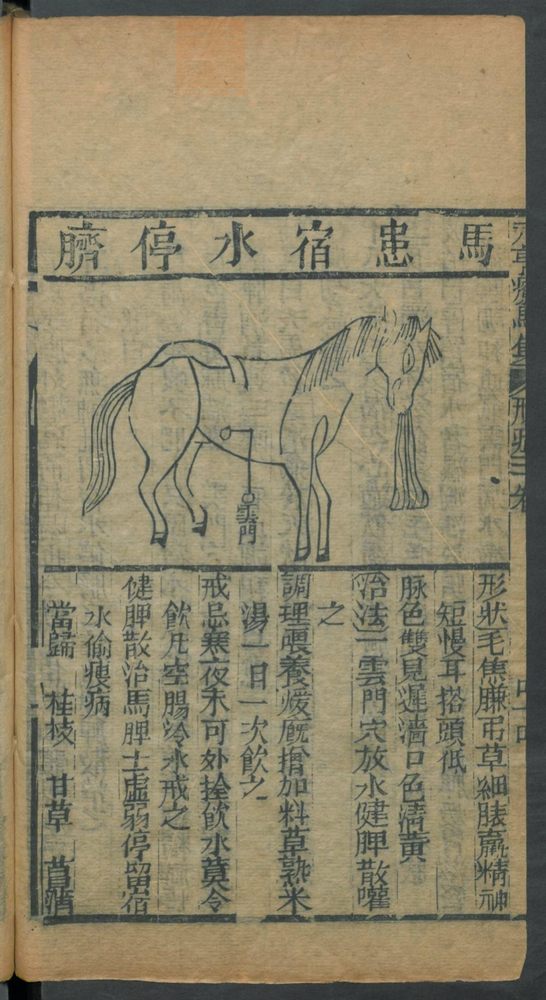 馬患宿水停臍
雲門
形狀毛焦膁吊草細膘羸精神
短慢耳搭頭低
脉色雙見遲濇口色清黃
治法二雲門穴放水健脾散嚾
之
調理喂養煖廐增加料草熟米
湯一日一次飲之
戒忌寒夜未可外拴飲水莫令
飲凡空腸冷水戒之
健脾散治馬脾土虛弱停留宿
水偷瘦病
當歸 桂枝 甘草